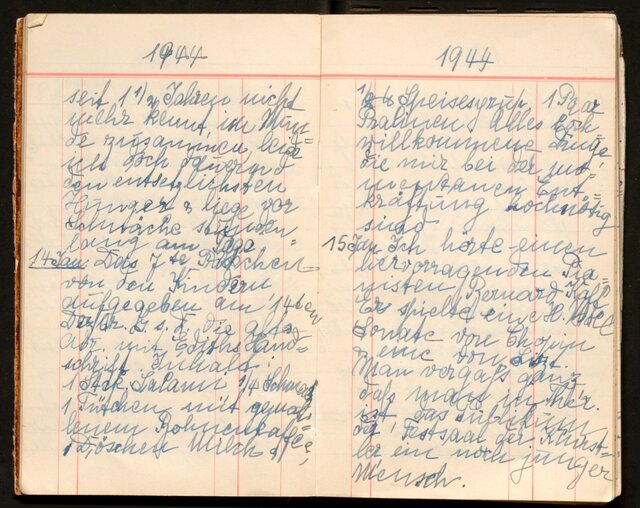 1944
seit 1 1/2 Jahren nicht
mehr kennt, im Mun=
de zusammen
ich doch dauernd
den entsetzlichsten
Hunger & liege vor
Schwäche stunden=
lang am
14 Jan. Das 7te Päckchen
von den Kindern
aufgegeben am 14ten
Dezbr. die
mit Ediths Hand=
schrift. Inhalt:
1 Stck. Salami 1/4 Schmalz
1 Tütchen mit gemah=
lenem Bohnenkaffee,
1 Döschen Milch
1944
1/2 to Speisesyrup, 1 Paar
Pralinen. Alles hoch
willkommene Dinge
die mir bei der
Ent=
kräftung hochnötig
sind
15 Jan. Ich hörte einen
hervorragenden Pia=
nisten Bernard Kaff
Er spielte eine H. Moll
Sonate von Chopin
eine von Liszt.
Man vergaß ganz
daß man in Ther.
ist das Publikum
der Festsaal der Künst=
ler ein noch junger
Mensch.